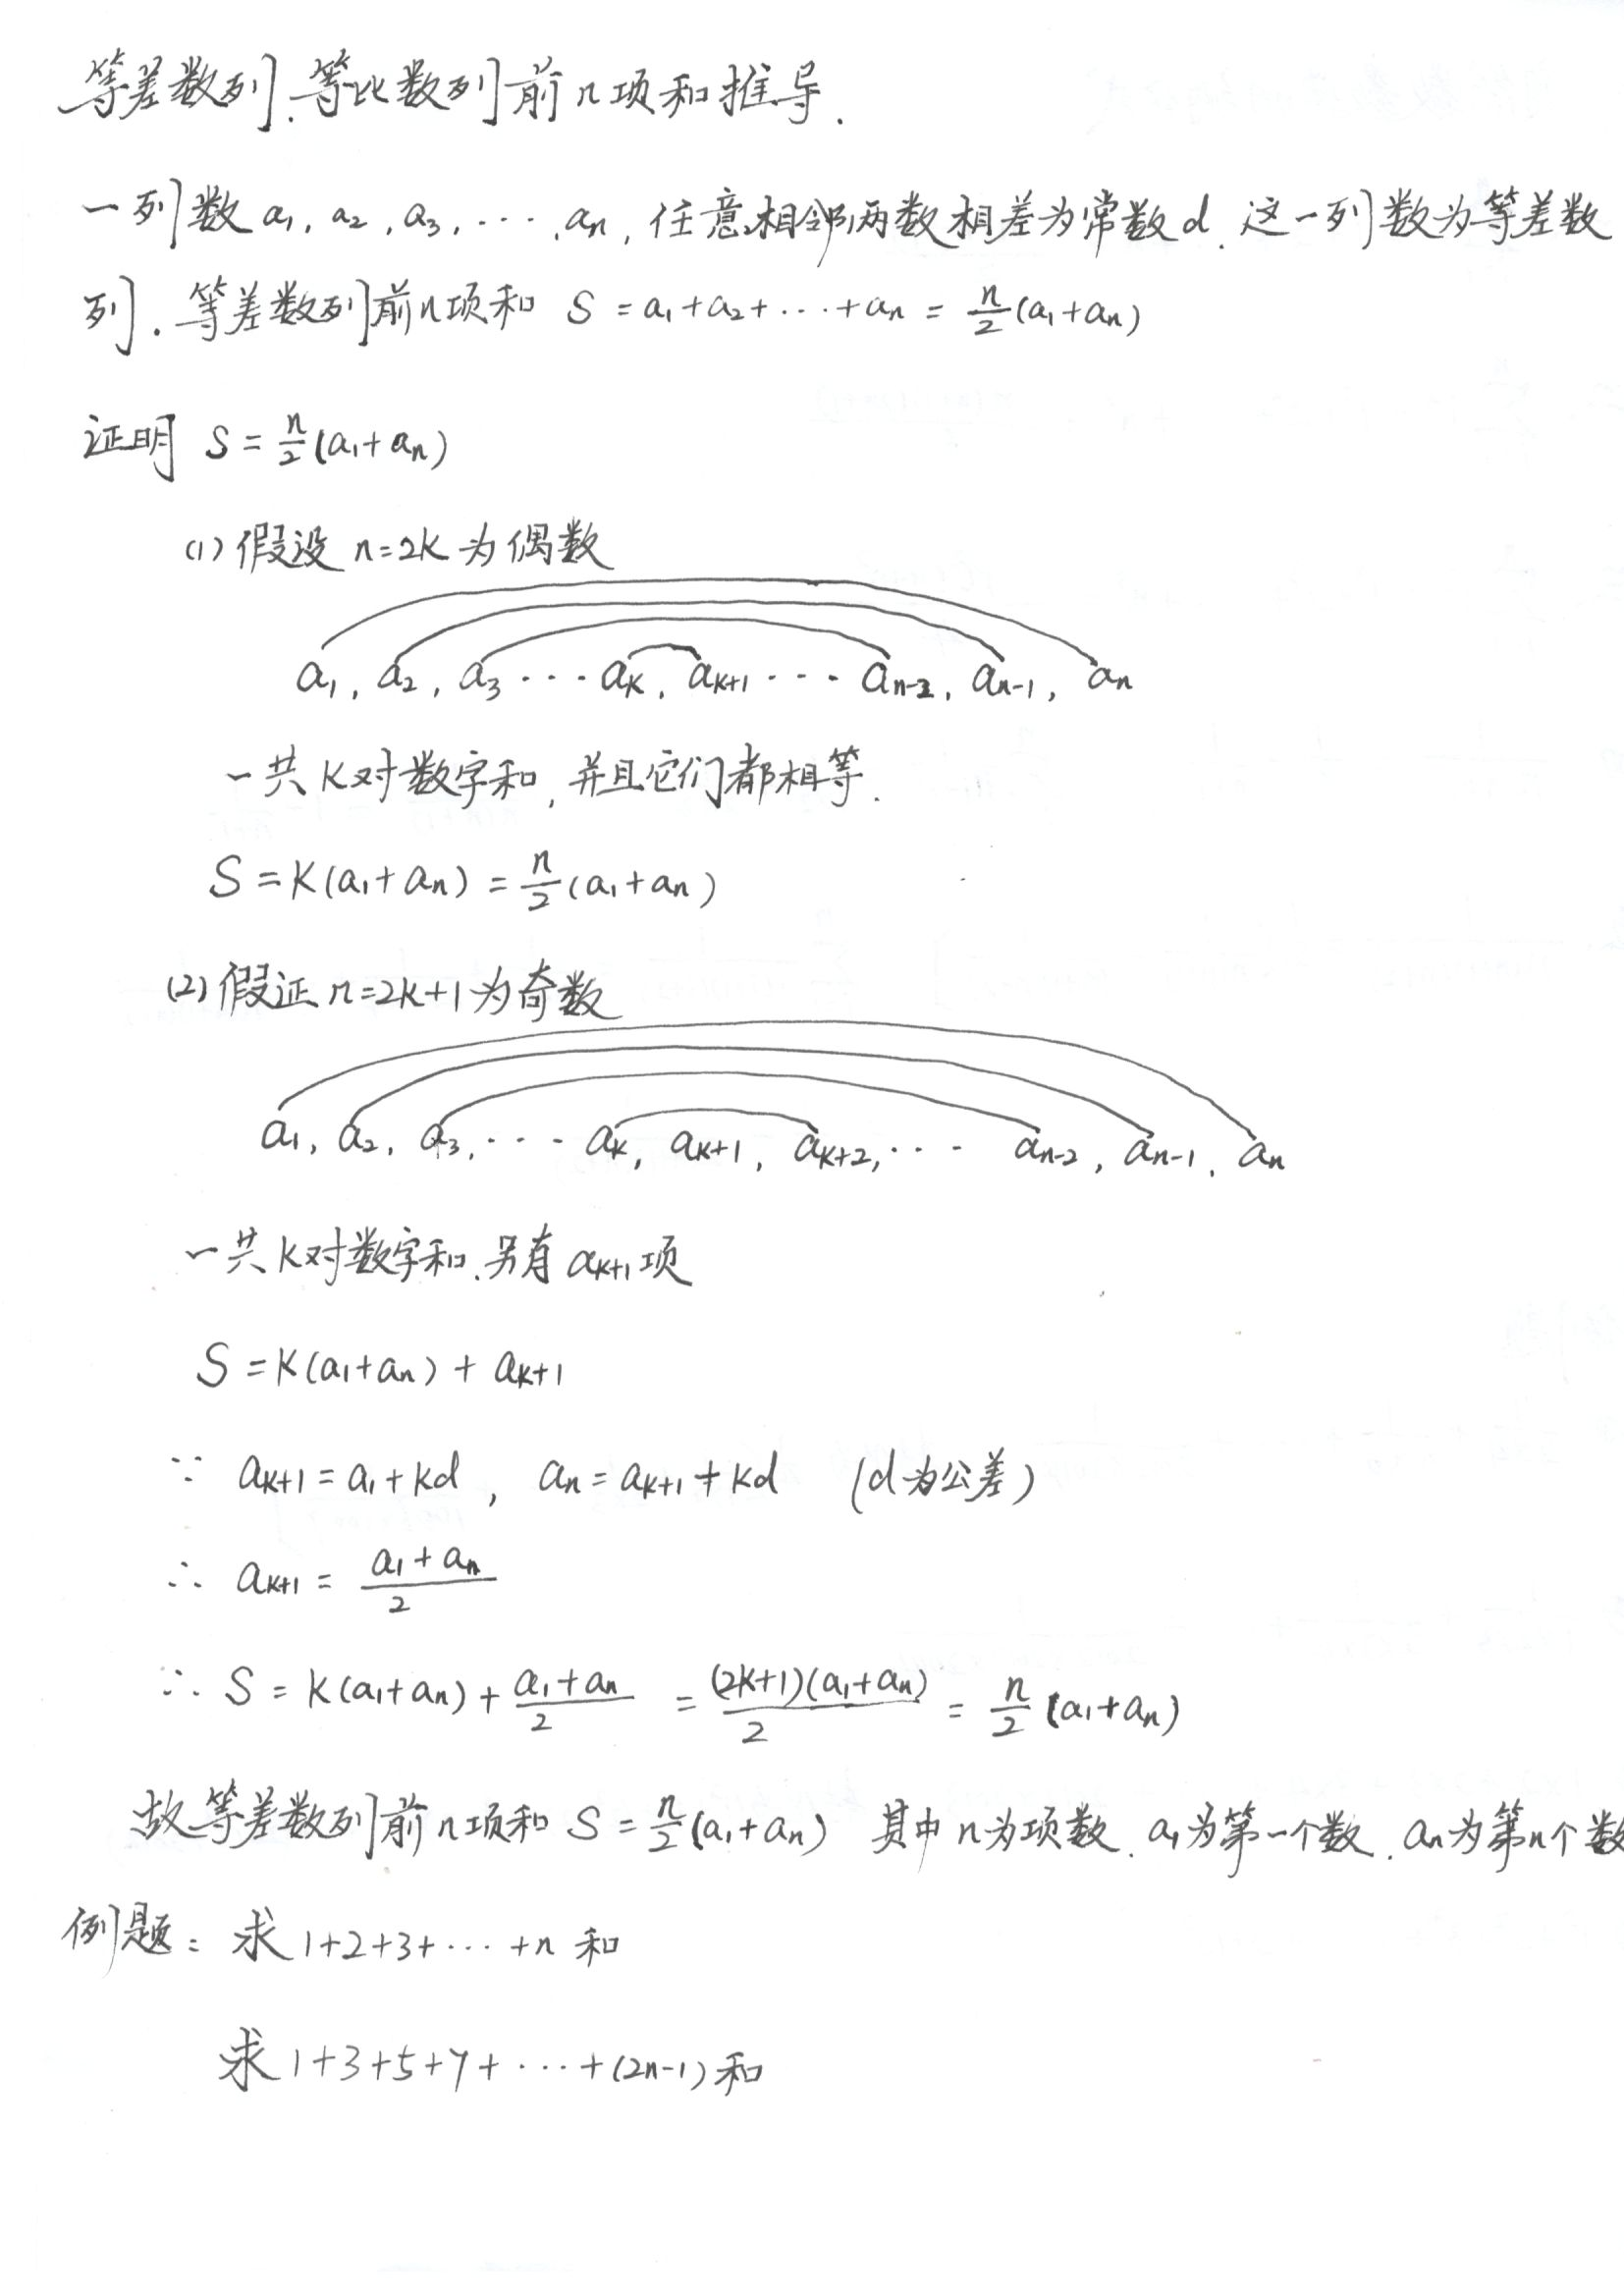 等差数列.等比数列前n项和推导.
一列数a₁, a₂, a₃, ···, aₙ, 任意相邻两数相差为常数d. 这一列数为等差数
列. 等差数列前n项和 S = a₁+a₂+···+aₙ = n/2(a₁+aₙ)
证明 S = n/2(a₁+aₙ)
(1) 假设 n=2k 为偶数
a₁, a₂, a₃ ··· aₖ, aₖ₊₁ ··· aₙ₋₂, aₙ₋₁, aₙ
一共k对数字和, 并且它们都相等.
S = k(a₁+aₙ) = n/2(a₁+aₙ)
(2) 假证 n=2k+1 为奇数
a₁, a₂, a₃, ··· aₖ, aₖ₊₁, aₖ₊₂, ··· aₙ₋₂, aₙ₋₁, aₙ
一共k对数字和.另有aₖ₊₁项
S = k(a₁+aₙ) + aₖ₊₁
∵ aₖ₊₁ = a₁+kd, aₙ = aₖ₊₁+kd (d为公差)
∴ aₖ₊₁ = (a₁+aₙ)/2
∴ S = k(a₁+aₙ) + (a₁+aₙ)/2 = (2k+1)(a₁+aₙ)/2 = n/2 (a₁+aₙ)
故等差数列前n项和 S = n/2(a₁+aₙ) 其中n为项数. a₁为第一个数. aₙ为第n个数
例题: 求1+2+3+···+n 和
求1+3+5+7+···+(2n-1)和